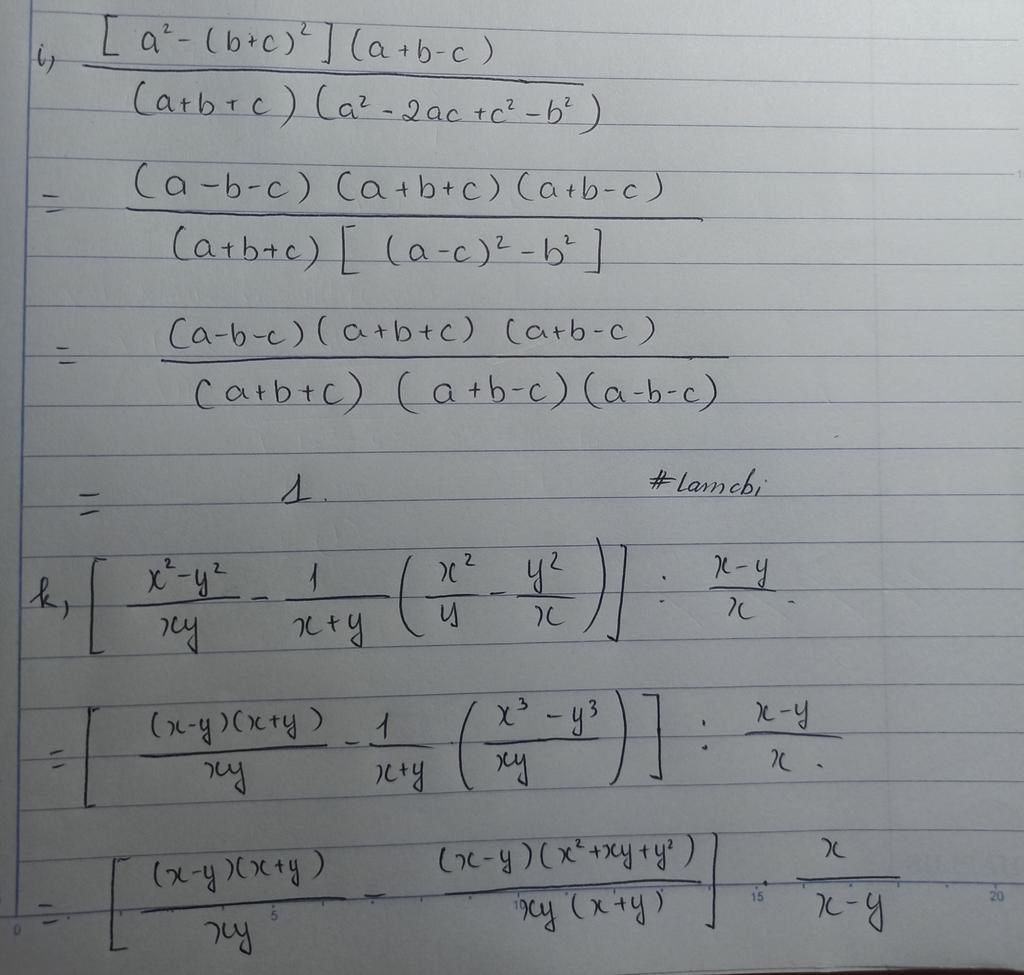 i, [a² - (b+c)²](a+b-c)
(a+b+c)(a² - 2ac + c² - b²)
= (a-b-c)(a+b+c)(a+b-c)
(a+b+c)[(a-c)² - b²]
= (a-b-c)(a+b+c)(a+b-c)
(a+b+c)(a+b-c)(a-b-c)
= 1. #Lamcbi
k, [x²-y² / xy - 1 / x+y (x² / y - y² / x)] : x-y / x.
= [(x-y)(x+y) / xy - 1 / x+y (x³ - y³ / xy)] : x-y / x.
= [(x-y)(x+y) / xy - (x-y)(x²+xy+y²) / xy(x+y)] . x / x-y
0 5 10 15 20